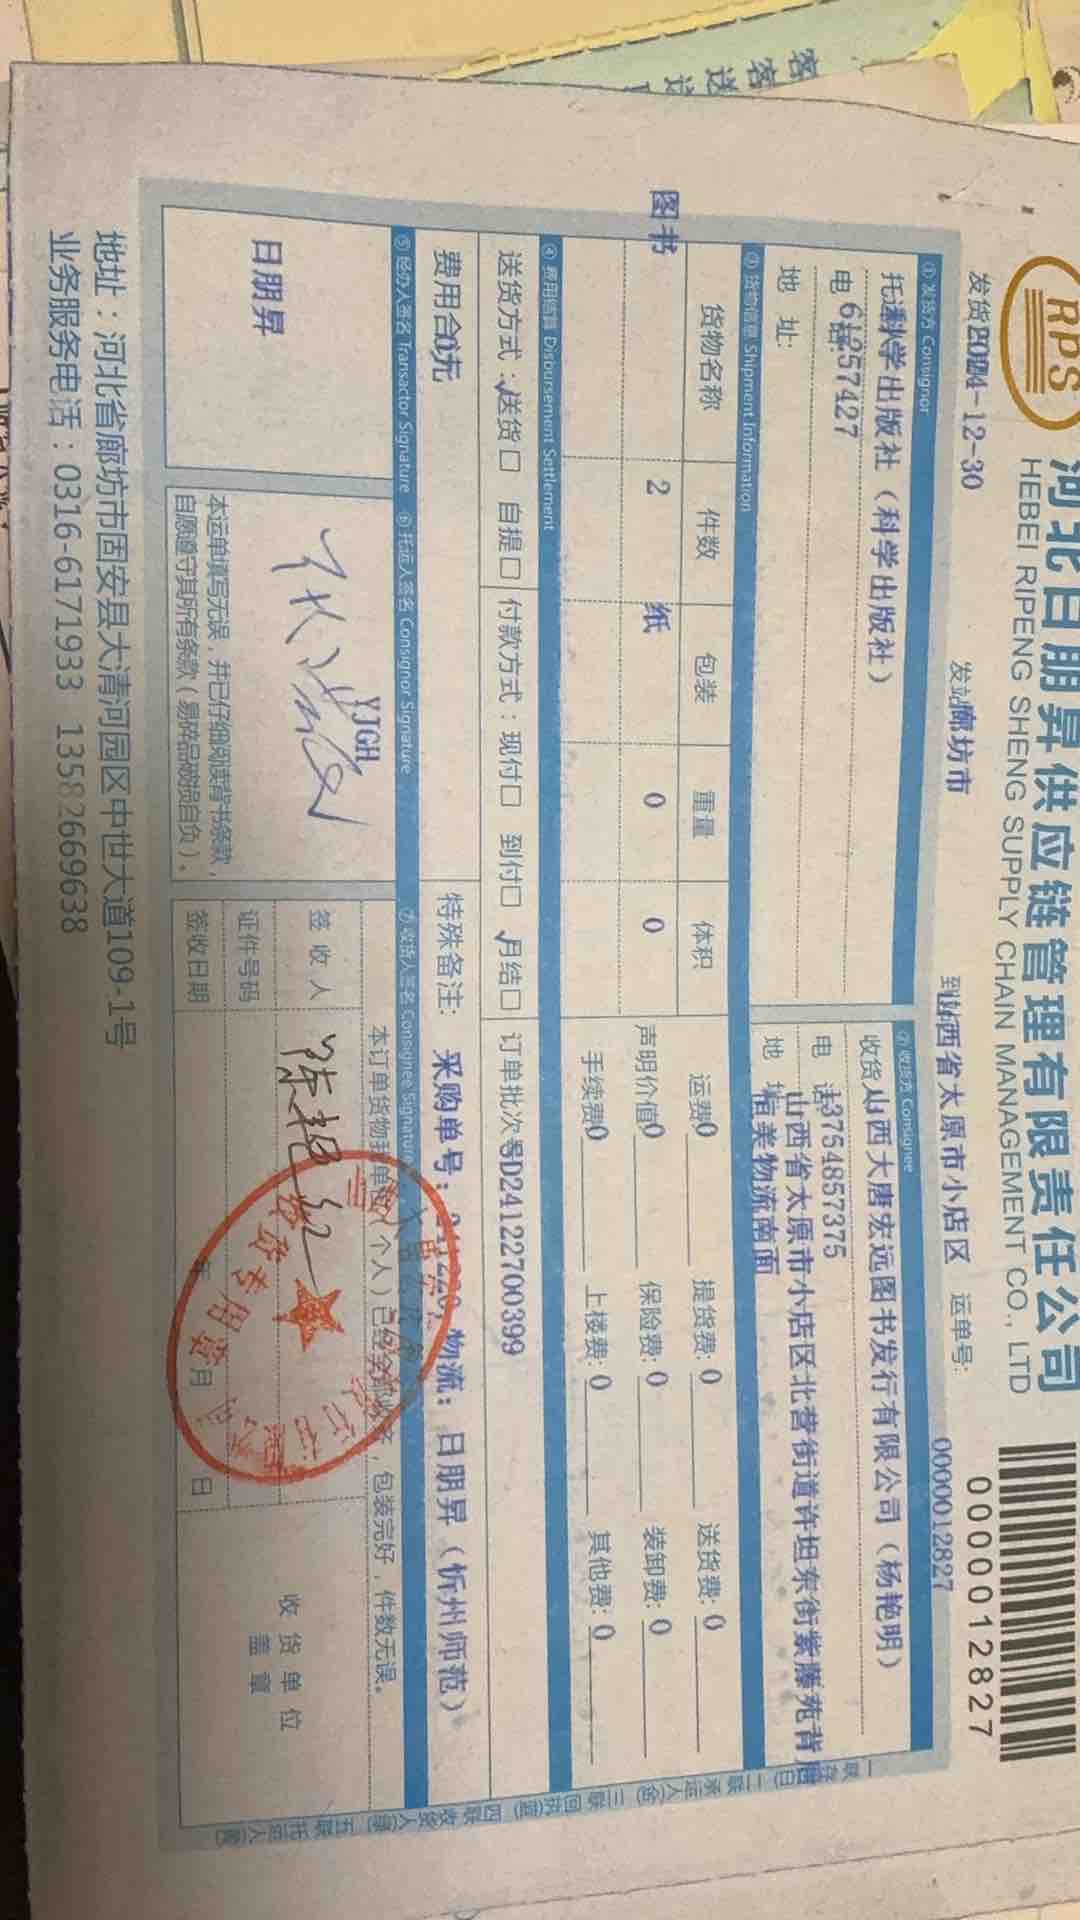 RPS
河北日朋昇供应链管理有限责任公司
HEBEI RIPENG SHENG SUPPLY CHAIN MANAGEMENT CO., LTD
0000012827
发货日期 2024-12-30 发站 廊坊市 到站 山西省太原市小店区 运单号: 0000012827
① 发货方 Consignor
托运 科学出版社（科学出版社）
电话 61257427
地 址:
② 收货方 Consignee
收货人 山西大唐宏远图书发行有限公司（杨艳明）
电 话 13754857375
地 址 山西省太原市小店区北营街道许坦东街紫藤苑背后
恒美物流南面
③ 货物信息 Shipment Information
货物名称 件数 包装 重量 体积
图书 2 纸 0 0
运费 0 提货费: 0 送货费: 0
声明价值 0 保险费: 0 装卸费: 0
手续费 0 上楼费: 0 其他费: 0
④ 费用结算 Disbursement Settlement
送货方式：送货☐ 自提☐ 付款方式：现付☐ 到付☐ 月结☐ 订单批次号 D2412270039​9
费用合计 0元
特殊备注: 采购单号: 物流: 日朋昇（忻州师范）
⑤ 经办人签名 Transactor Signature ⑥ 托运人签名 Consignor Signature ⑦ 收货人签名 Consignee Signature
日朋昇
YJGH
本运单填写无误，并已仔细阅读背书条款，
自愿遵守其所有条款（易碎品破损自负）。
本订单货物我单位（个人）已经全部收齐，包装完好，件数无误。
签 收 人 陈艳红
证件号码
签收日期 年 月 日
收 货 单 位
盖 章
地址：河北省廊坊市固安县大清河园区中世大道109-1号
业务服务电话：0316-6171933 13582669638